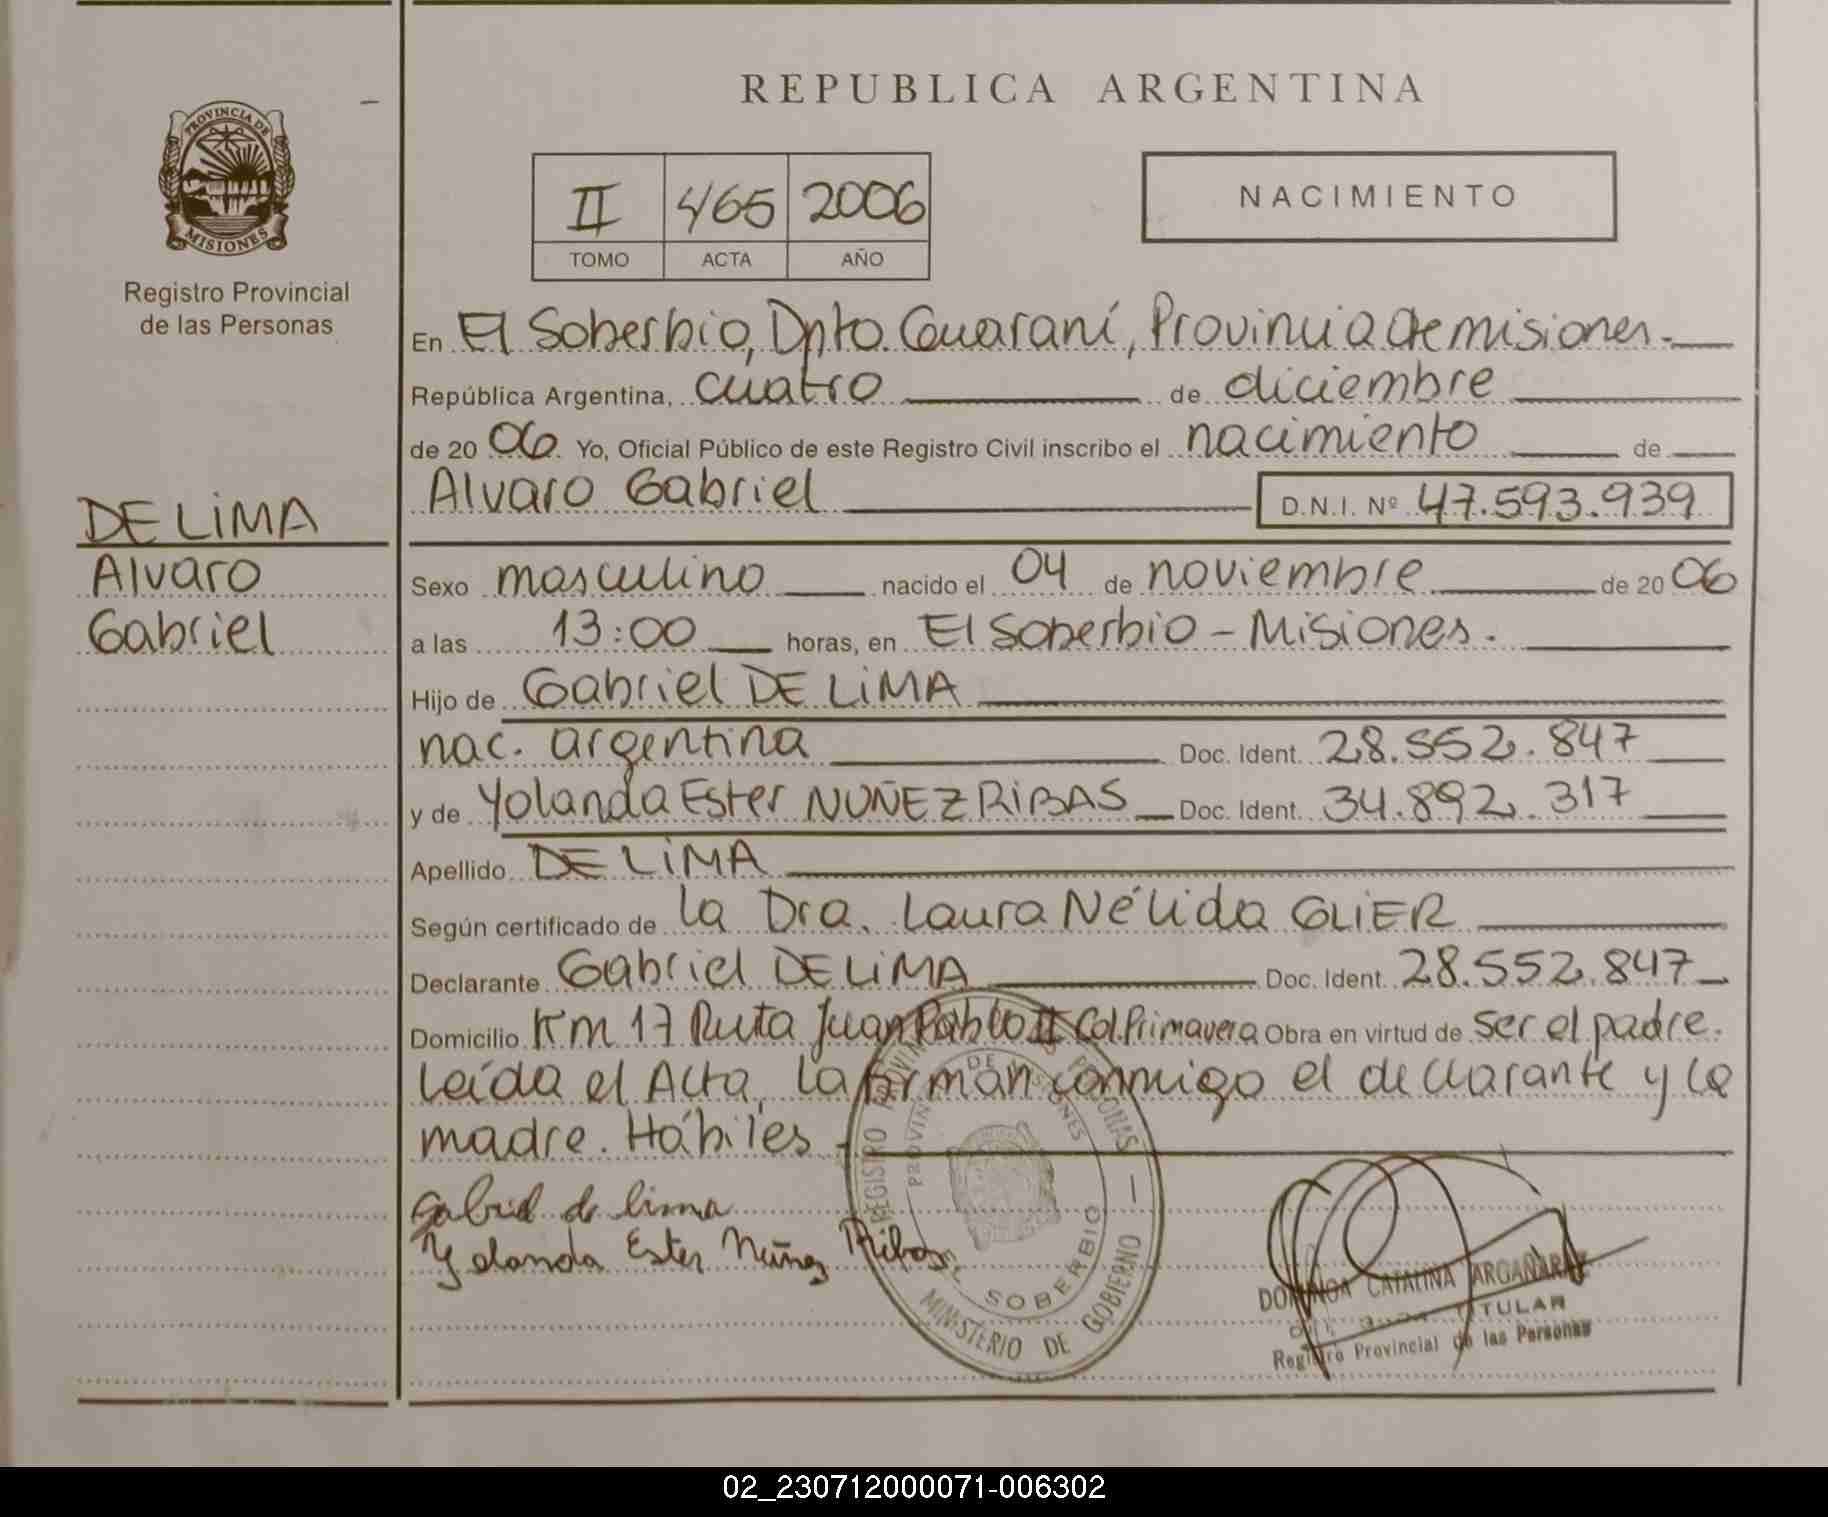 REPUBLICA ARGENTINA
PROVINCIA DE
MISIONES
Registro Provincial
de las Personas
II 465 2006
TOMO ACTA AÑO
NACIMIENTO
DE LiMA
Alvaro
Gabriel
En El Soberbio, Dpto. Guaraní, Provincia de misiones.
República Argentina, cuatro de diciembre
de 20 06 Yo, Oficial Público de este Registro Civil inscribo el nacimiento de
Alvaro Gabriel D.N.I. Nº 47.593.939
Sexo masculino nacido el 04 de noviembre de 20 06
a las 13:00 horas, en El Soberbio - Misiones.
Hijo de Gabriel DE LiMA
nac. argentina Doc. Ident. 28.552.847
y de Yolanda Ester NUÑEZ RiBAS Doc. Ident. 34.892.317
Apellido DE LiMA
Según certificado de la Dra. Laura Nélida GLiER
Declarante Gabriel DE LiMA Doc. Ident. 28.552.847
Domicilio Km 17 Ruta Juan Pablo II Col. Primavera Obra en virtud de ser el padre.
Leída el Acta, la firman conmigo el declarante y la
madre. Hábiles.
Gabriel de lima
Yolanda Ester Nuñez Ribas
REGISTRO PROVINCIAL DE LAS PERSONAS
PROVINCIA DE MISIONES
EL SOBERBIO
MINISTERIO DE GOBIERNO
DOMINGA CATALINA ARGAÑARAZ
TITULAR
Registro Provincial de las Personas
02_230712000071-006302